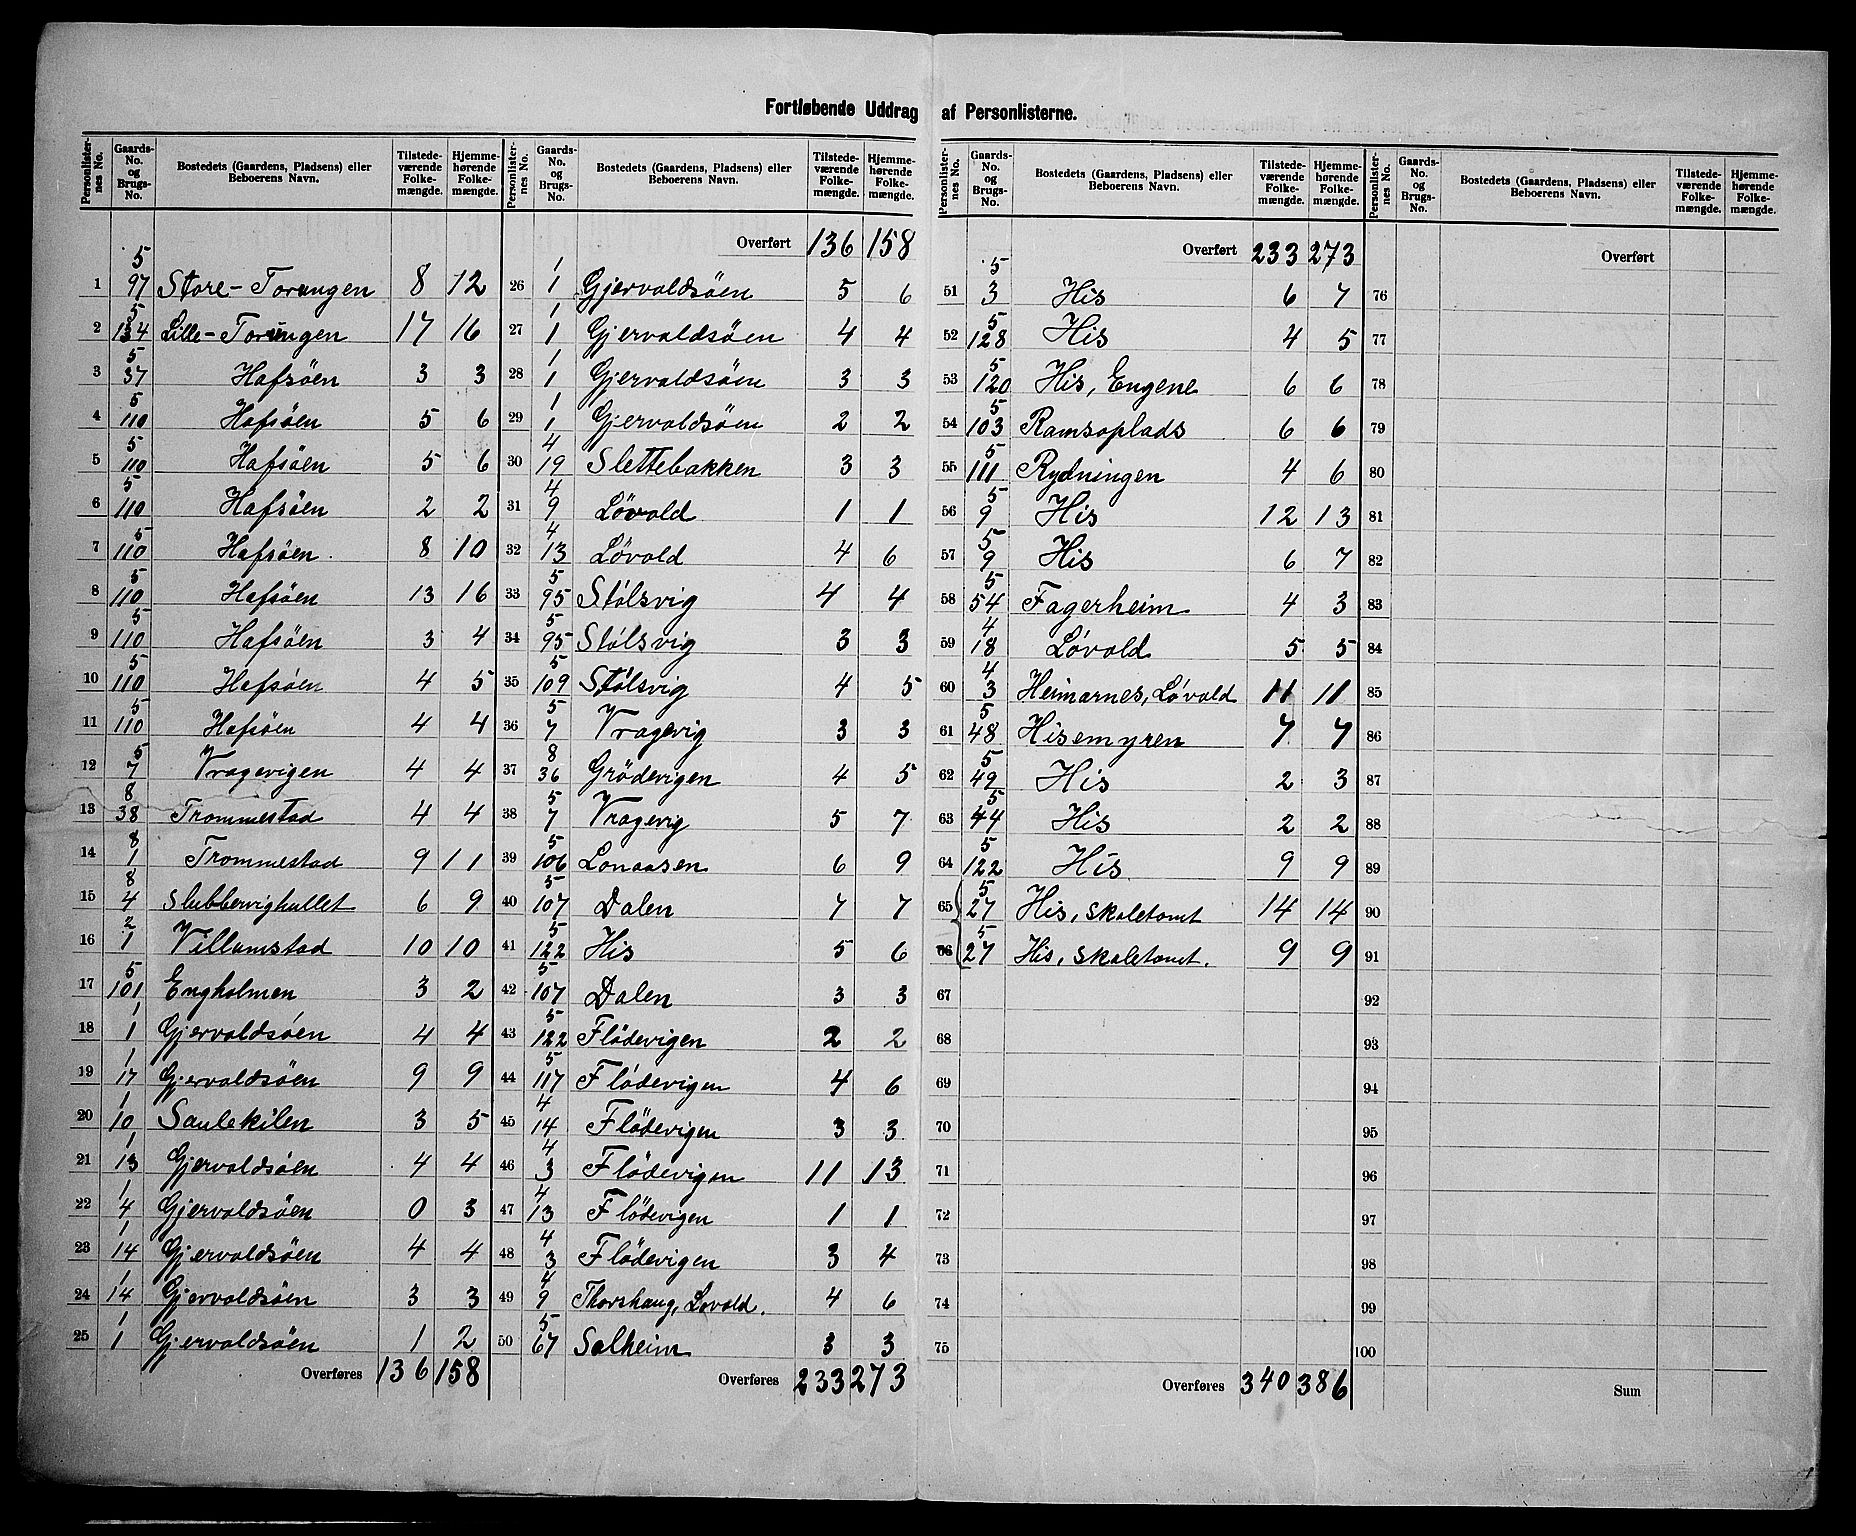 Fortløbende Uddrag af Personlisterne.
Personlister-nes No. | Gaards-No. og Brugs-No. | Bostedets (Gaardens, Pladsens) eller Beboerens Navn. | Tilstede-værende Folke-mængde. | Hjemme-hørende Folke-mængde.
1 | 5 97 | Store-Torungen | 8 | 12
2 | 5 134 | Lille-Torungen | 17 | 16
3 | 5 37 | Hafsöen | 3 | 3
4 | 5 110 | Hafsöen | 5 | 6
5 | 5 110 | Hafsöen | 5 | 6
6 | 5 110 | Hafsöen | 2 | 2
7 | 5 110 | Hafsöen. | 8 | 10
8 | 5 110 | Hafsöen | 13 | 16
9 | 5 110 | Hafsöen | 3 | 4
10 | 5 110 | Hafsöen | 4 | 5
11 | 5 110 | Hafsöen | 4 | 4
12 | 5 7 | Vragevigen | 4 | 4
13 | 8 38 | Trommestad | 4 | 4
14 | 8 1 | Trommestad | 9 | 11
15 | 8 4 | Slubbervighullet | 6 | 9
16 | 2 1 | Villumstad | 10 | 10
17 | 5 101 | Engholmen | 3 | 2
18 | 1 1 | Gjervoldsöen | 4 | 4
19 | 1 17 | Gjervoldsöen | 9 | 9
20 | 1 10 | Saulekilen | 3 | 5
21 | 1 13 | Gjervoldsöen | 4 | 4
22 | 1 4 | Gjervoldsöen | 0 | 3
23 | 1 14 | Gjervoldsöen | 4 | 4
24 | 1 14 | Gjervoldsöen | 3 | 3
25 | 1 1 | Gjervoldsöen | 1 | 2
Overføres 136 158
Personlister-nes No. | Gaards-No. og Brugs-No. | Bostedets (Gaardens, Pladsens) eller Beboerens Navn. | Tilstede-værende Folke-mængde. | Hjemme-hørende Folke-mængde.
Overført 136 158
26 | 1 1 | Gjervoldsöen | 5 | 6
27 | 1 1 | Gjervoldsöen | 4 | 4
28 | 1 1 | Gjervoldsöen | 3 | 3
29 | 1 1 | Gjervoldsöen | 2 | 2
30 | 4 19 | Slettebakken | 3 | 3
31 | 4 9 | Lövold | 1 | 1
32 | 4 13 | Lövold | 4 | 6
33 | 5 95 | Stølsvig | 4 | 4
34 | 5 95 | Stølsvig | 3 | 3
35 | 5 109 | Stølsvig | 4 | 5
36 | 5 7 | Vragevig | 3 | 3
37 | 8 36 | Grödevigen | 4 | 5
38 | 5 7 | Vragevig | 5 | 7
39 | 5 106 | Lonaasen | 6 | 9
40 | 5 107 | Dalen | 7 | 7
41 | 5 122 | His | 5 | 6
42 | 5 107 | Dalen | 3 | 3
43 | 5 122 | Flödevigen | 2 | 2
44 | 5 117 | Flödevigen | 4 | 6
45 | 4 14 | Flödevigen | 3 | 3
46 | 4 3 | Flödevigen | 11 | 13
47 | 4 13 | Flödevigen | 1 | 1
48 | 4 3 | Flödevigen | 3 | 4
49 | 4 9 | Thorshaug, Lovold. | 4 | 6
50 | 5 67 | Solheim | 3 | 3
Overføres 233 273
Personlister-nes No. | Gaards-No. og Brugs-No. | Bostedets (Gaardens, Pladsens) eller Beboerens Navn. | Tilstede-værende Folke-mængde. | Hjemme-hørende Folke-mængde.
Overført 233 273
51 | 5 3 | His | 6 | 7
52 | 5 128 | His | 4 | 5
53 | 5 120 | His, Engene | 6 | 6
54 | 5 103 | Ramsoplads | 6 | 6
55 | 5 111 | Rydningen | 4 | 6
56 | 5 9 | His | 12 | 13
57 | 5 9 | His | 6 | 7
58 | 5 54 | Fagerheim | 4 | 3
59 | 4 18 | Lövold | 5 | 5
60 | 4 3 | Heimarnes, Lövold | 11 | 11
61 | 5 48 | Hisemyren | 7 | 7
62 | 5 49 | His | 2 | 3
63 | 5 44 | His | 2 | 2
64 | 5 122 | His | 9 | 9
65 | 5 27 | His, skoletomt | 14 | 14
66 | 5 27 | His, skoletomt. | 9 | 9
67
68
69
70
71
72
73
74
75
Overføres 340 386
Personlister-nes No. | Gaards-No. og Brugs-No. | Bostedets (Gaardens, Pladsens) eller Beboerens Navn. | Tilstede-værende Folke-mængde. | Hjemme-hørende Folke-mængde.
Overført
76
77
78
79
80
81
82
83
84
85
86
87
88
89
90
91
92
93
94
95
96
97
98
99
100
Sum